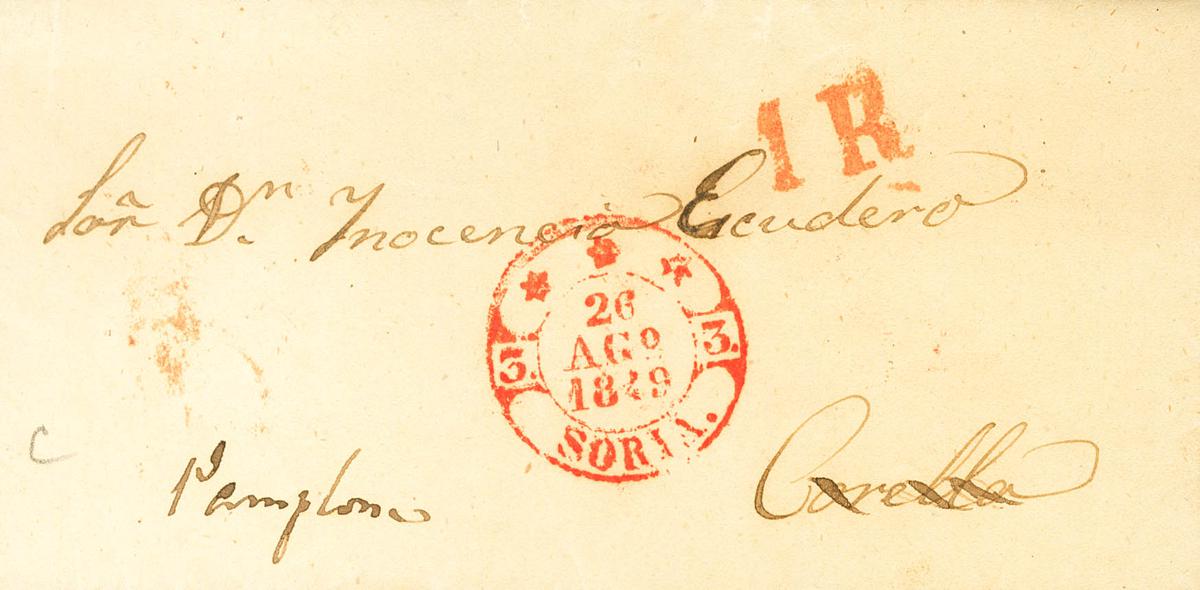 1 R
Sōr Dn. Ynocencio Escudero
26
AGº
1849
3. 3.
SORIA.
Pamplona
Corella
C